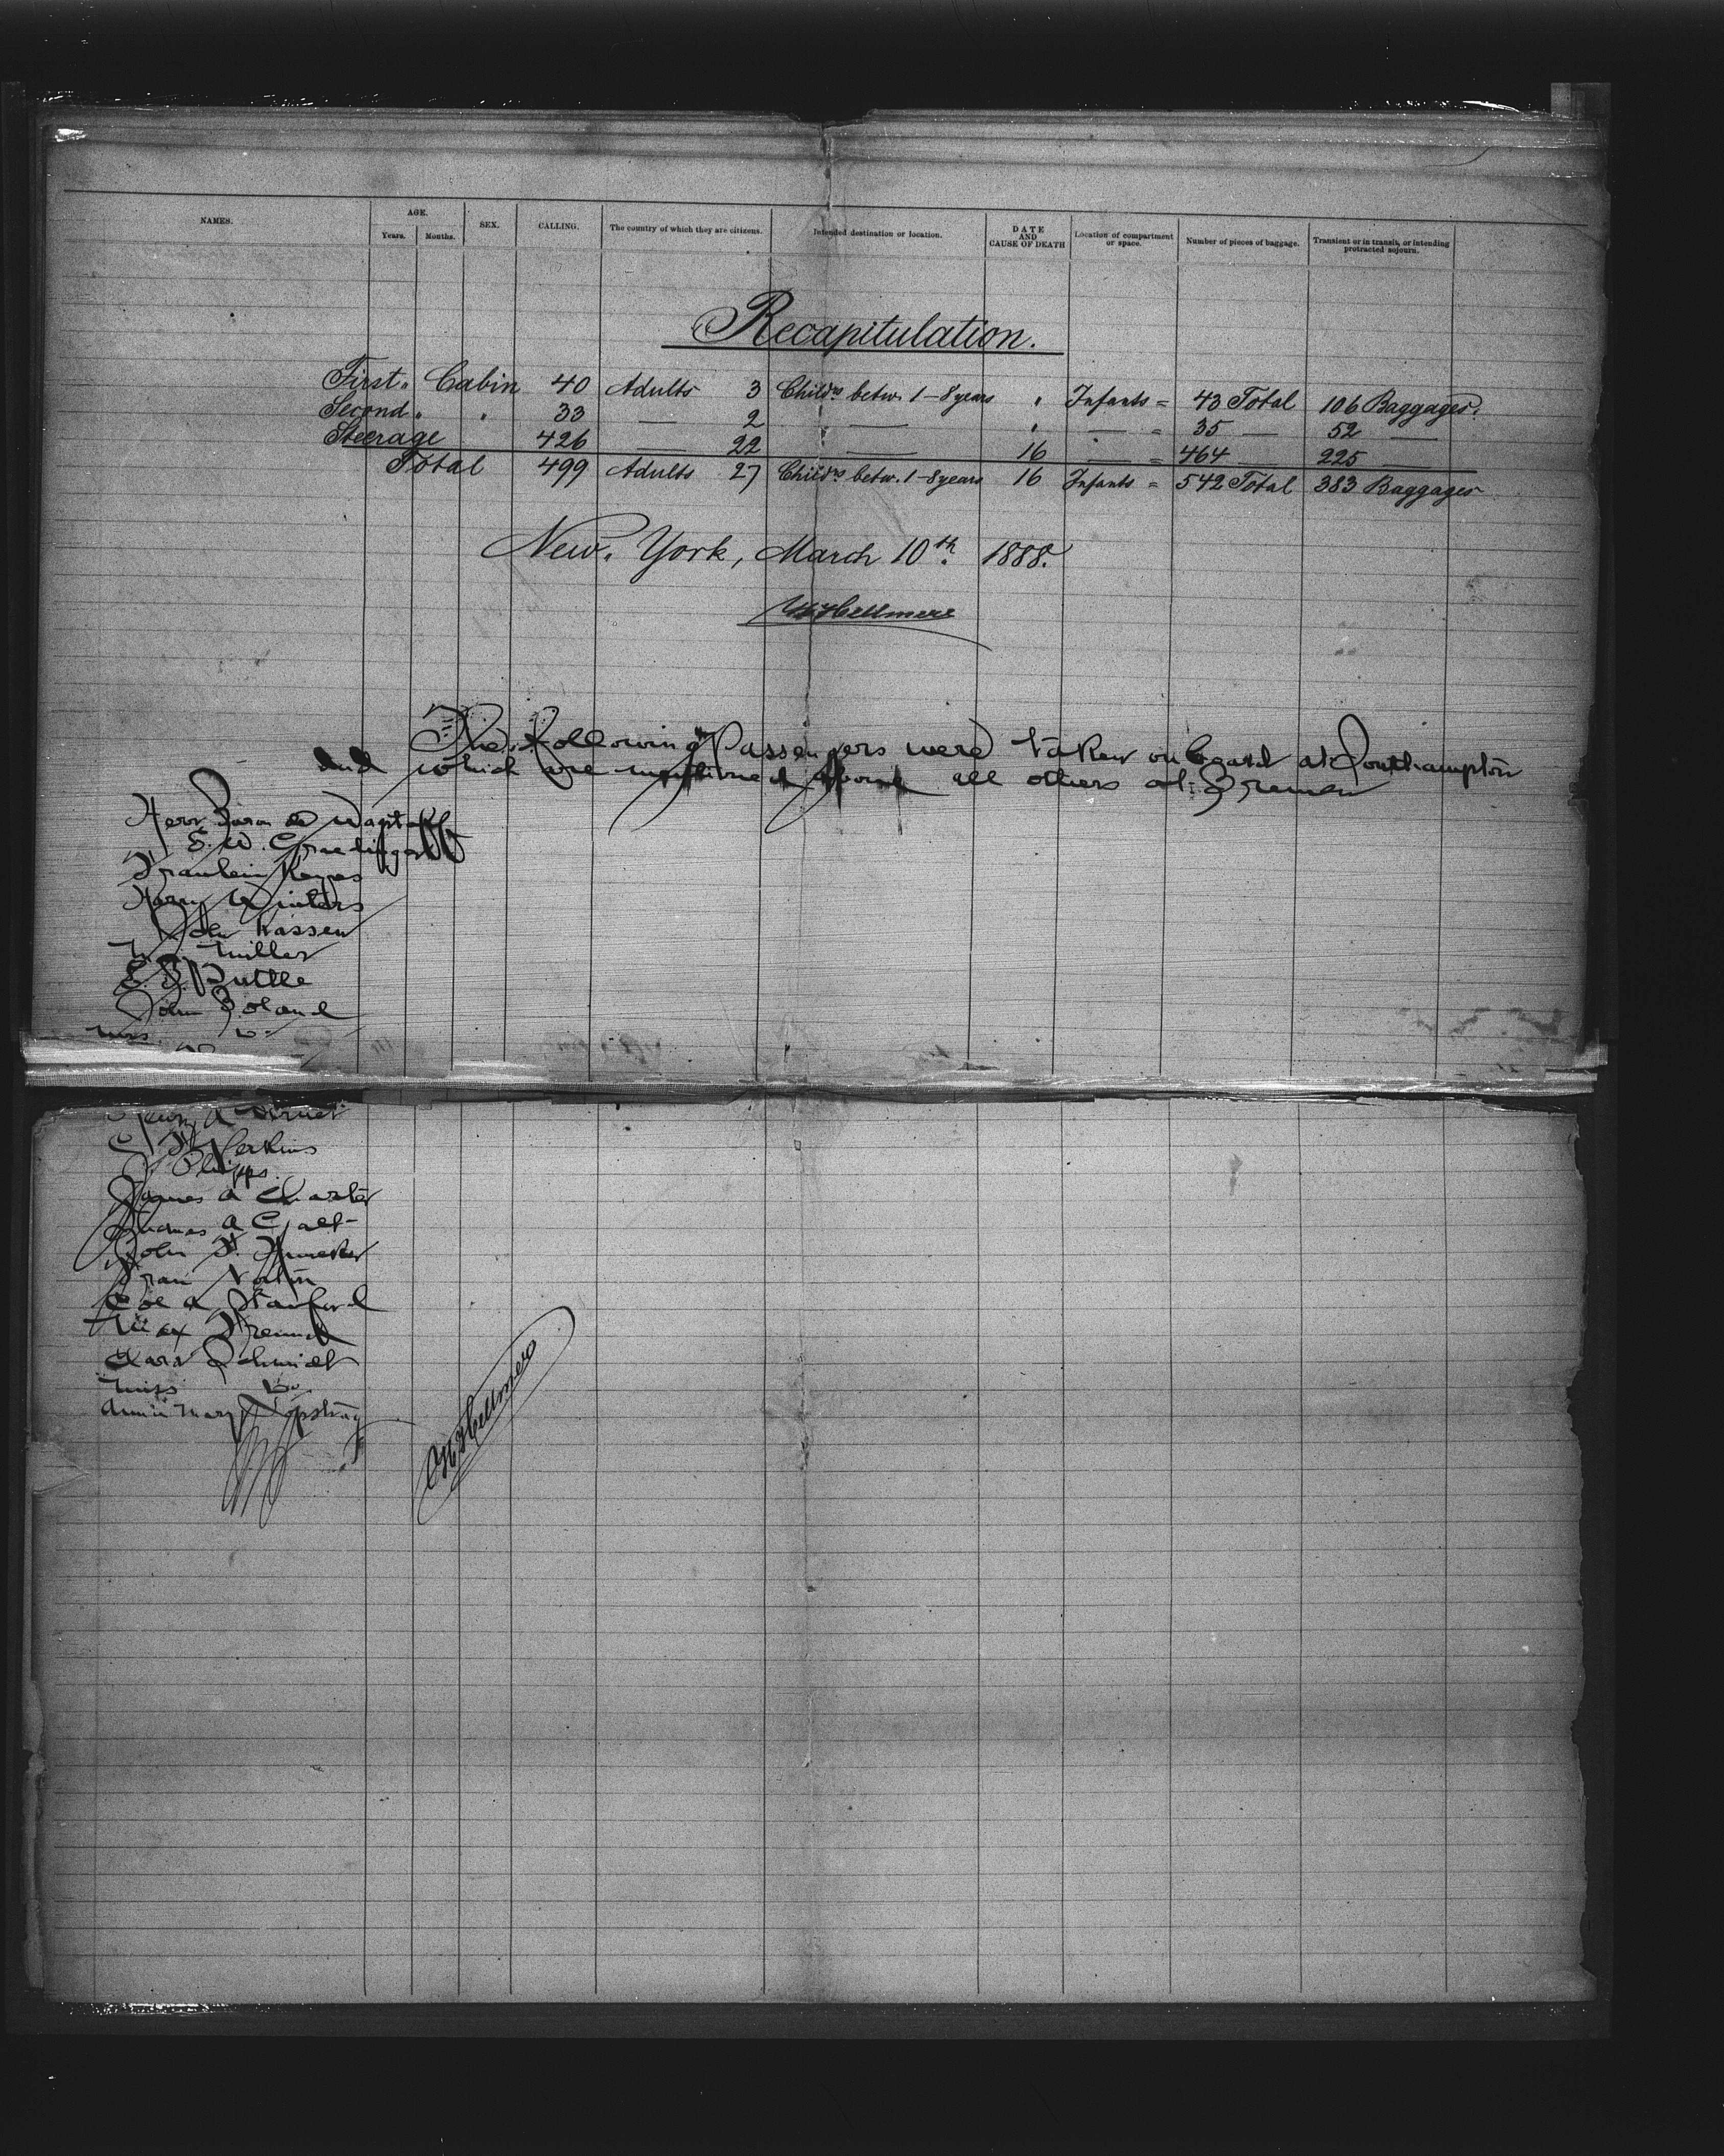 NAMES. AGE. Years. Months. SEX. CALLING. The country of which they are citizens. Intended destination or location. DATE AND CAUSE OF DEATH Location of compartment or space. Number of pieces of baggage. Transient or in transit, or intending protracted sojourn.
Recapitulation.
First " Cabin 40 Adults 3 Childrn betw. 1-8 years " Infants = 43 Total 106 Baggages.
Second " " 33 — 2 — " — = 35 — 52 —
Steerage 426 — 22 — 16 — = 464 — 225 —
Total 499 Adults 27 Childrn betw. 1-8 years 16 Infants = 542 Total 383 Baggages
New-York, March 10th 1888.
Hellmers
The following Passengers were taken on board at Southampton
and which are mentioned above all others at Bremen
Herr Baron de
E. W.
Fraulein Keyes
Harry Winters
John Kassen
Miller
E. B. Tuttle
John Boland
Mrs. Do
Henry A
C H Perkins
J Phipps
James A Charter
Thomas A Galt
John F. Huneker
Frau
A Stanford
Max Freund
Clara Schmidt
Miss Do
Annie Mary
Hellmers